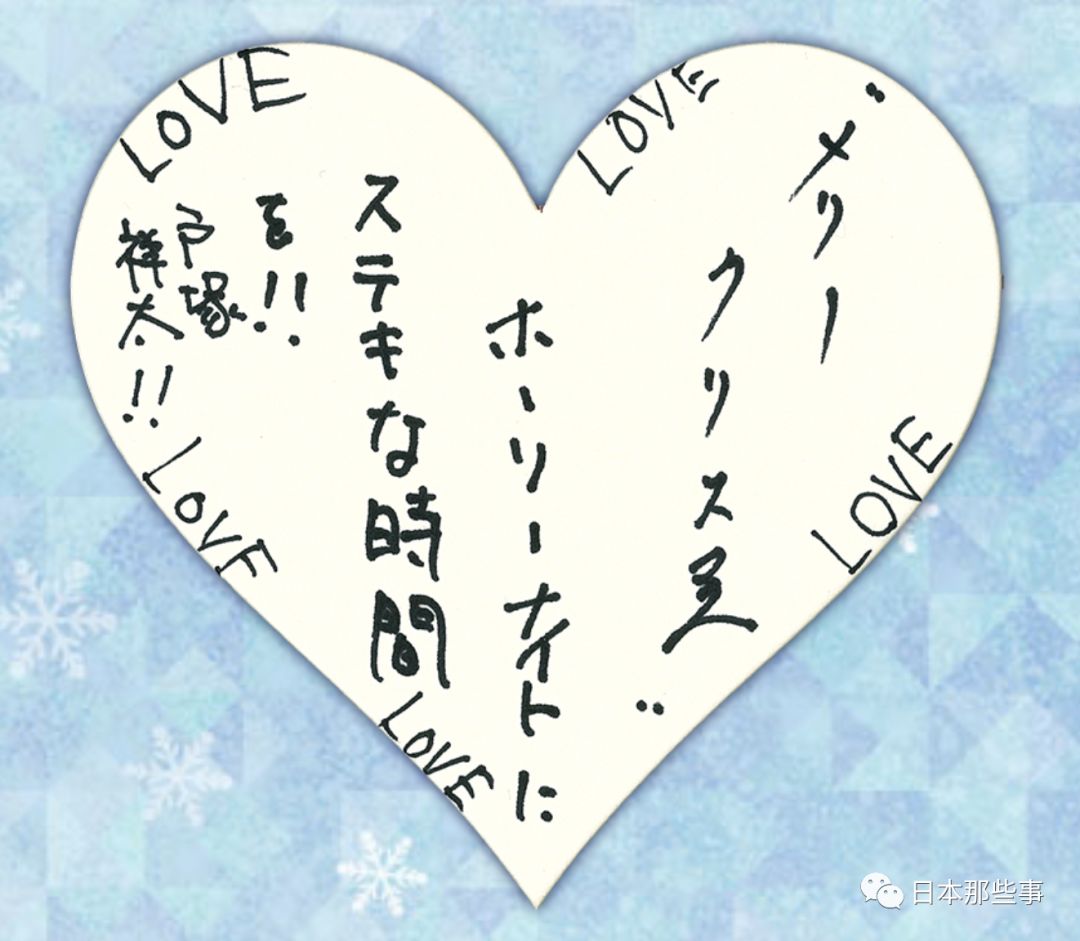 "メリー
クリス足"
ホーリーナイトに
ステキな時間
を!!
戸塚
祥太!!
LOVE
LOVE
LOVE
LOVE
LOVE
日本那些事